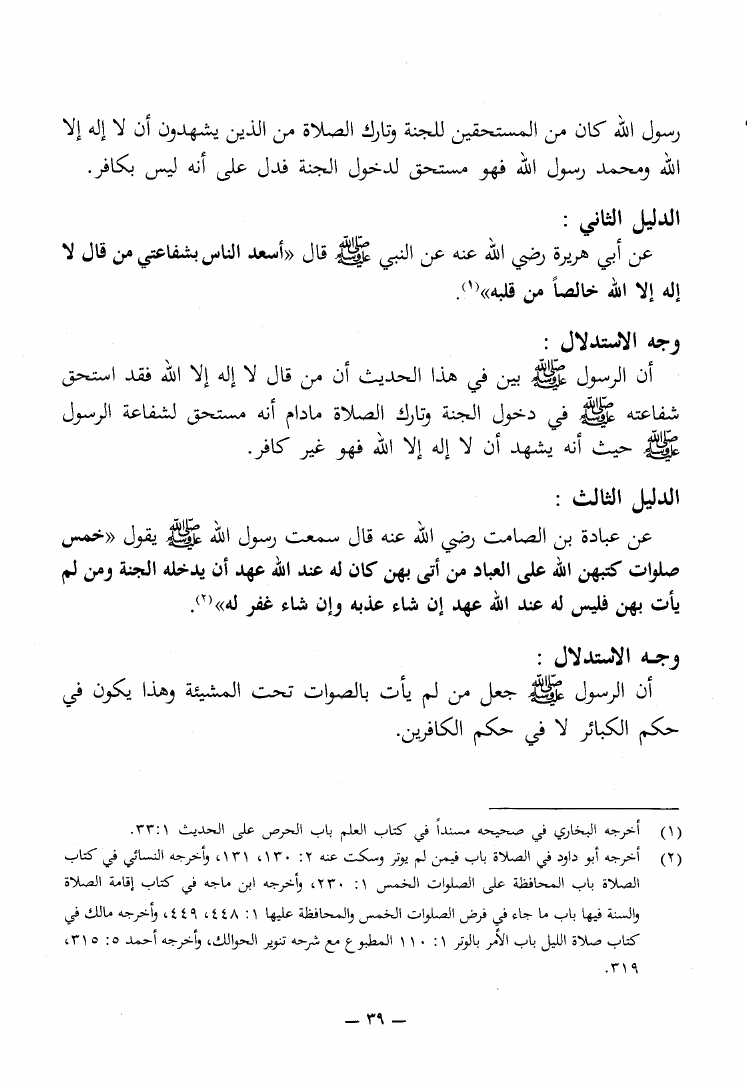 رسول الله كان من المستحقين للجنة وتارك الصلاة من الذين يشهدون أن لا إله إلا
الله ومحمد رسول الله فهو مستحق لدخول الجنة فدل على أنه ليس بكافر.
الدليل الثاني :
عن أبي هريرة رضي الله عنه عن النبي ﷺ قال «أسعد الناس بشفاعتي من قال لا
إله إلا الله خالصاً من قلبه»(١).
وجه الاستدلال :
أن الرسول ﷺ بين في هذا الحديث أن من قال لا إله إلا الله فقد استحق
شفاعته ﷺ في دخول الجنة وتارك الصلاة مادام أنه مستحق لشفاعة الرسول
ﷺ حيث أنه يشهد أن لا إله إلا الله فهو غير كافر.
الدليل الثالث :
عن عبادة بن الصامت رضي الله عنه قال سمعت رسول الله ﷺ يقول «خمس
صلوات كتبهن الله على العباد من أتى بهن كان له عند الله عهد أن يدخله الجنة ومن لم
يأت بهن فليس له عند الله عهد إن شاء عذبه وإن شاء غفر له»(٢).
وجه الاستدلال :
أن الرسول ﷺ جعل من لم يأت بالصوات تحت المشيئة وهذا يكون في
حكم الكبائر لا في حكم الكافرين.
(١) أخرجه البخاري في صحيحه مسنداً في كتاب العلم باب الحرص على الحديث ١ :٣٣.
(٢) أخرجه أبو داود في الصلاة باب فيمن لم يوتر وسكت عنه ٢ : ١٣٠، ١٣١، وأخرجه النسائي في كتاب
الصلاة باب المحافظة على الصلوات الخمس ١ : ٢٣٠، وأخرجه ابن ماجه في كتاب إقامة الصلاة
والسنة فيها باب ما جاء في فرض الصلوات الخمس والمحافظة عليها ١ : ٤٤٨، ٤٤٩، وأخرجه مالك في
كتاب صلاة الليل باب الأمر بالوتر ١ : ١١٠ المطبوع مع شرحه تنوير الحوالك، وأخرجه أحمد ٥ : ٣١٥،
٣١٩.
— ٣٩ —